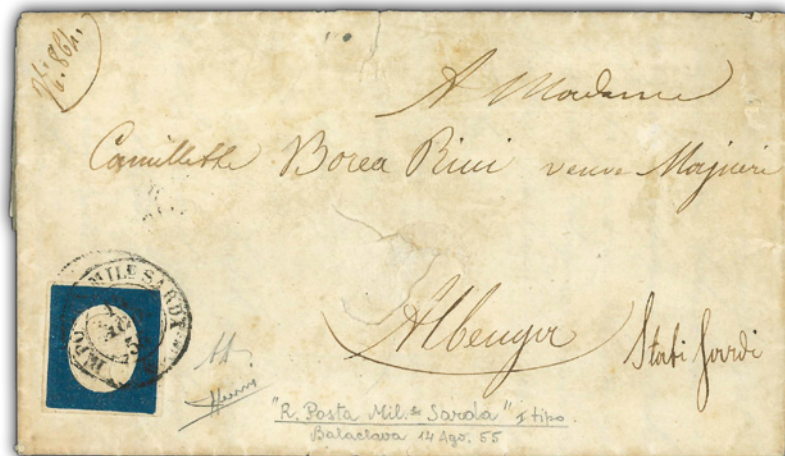 N.° 864.
A Madame
Camillethe Borea Ricci veuve Majneri
Albenga
Stati Sardi
MIL.E SARDA
"R. Posta Mil.re Sarda" I tipo.
Balaclava 14 Ago. 55